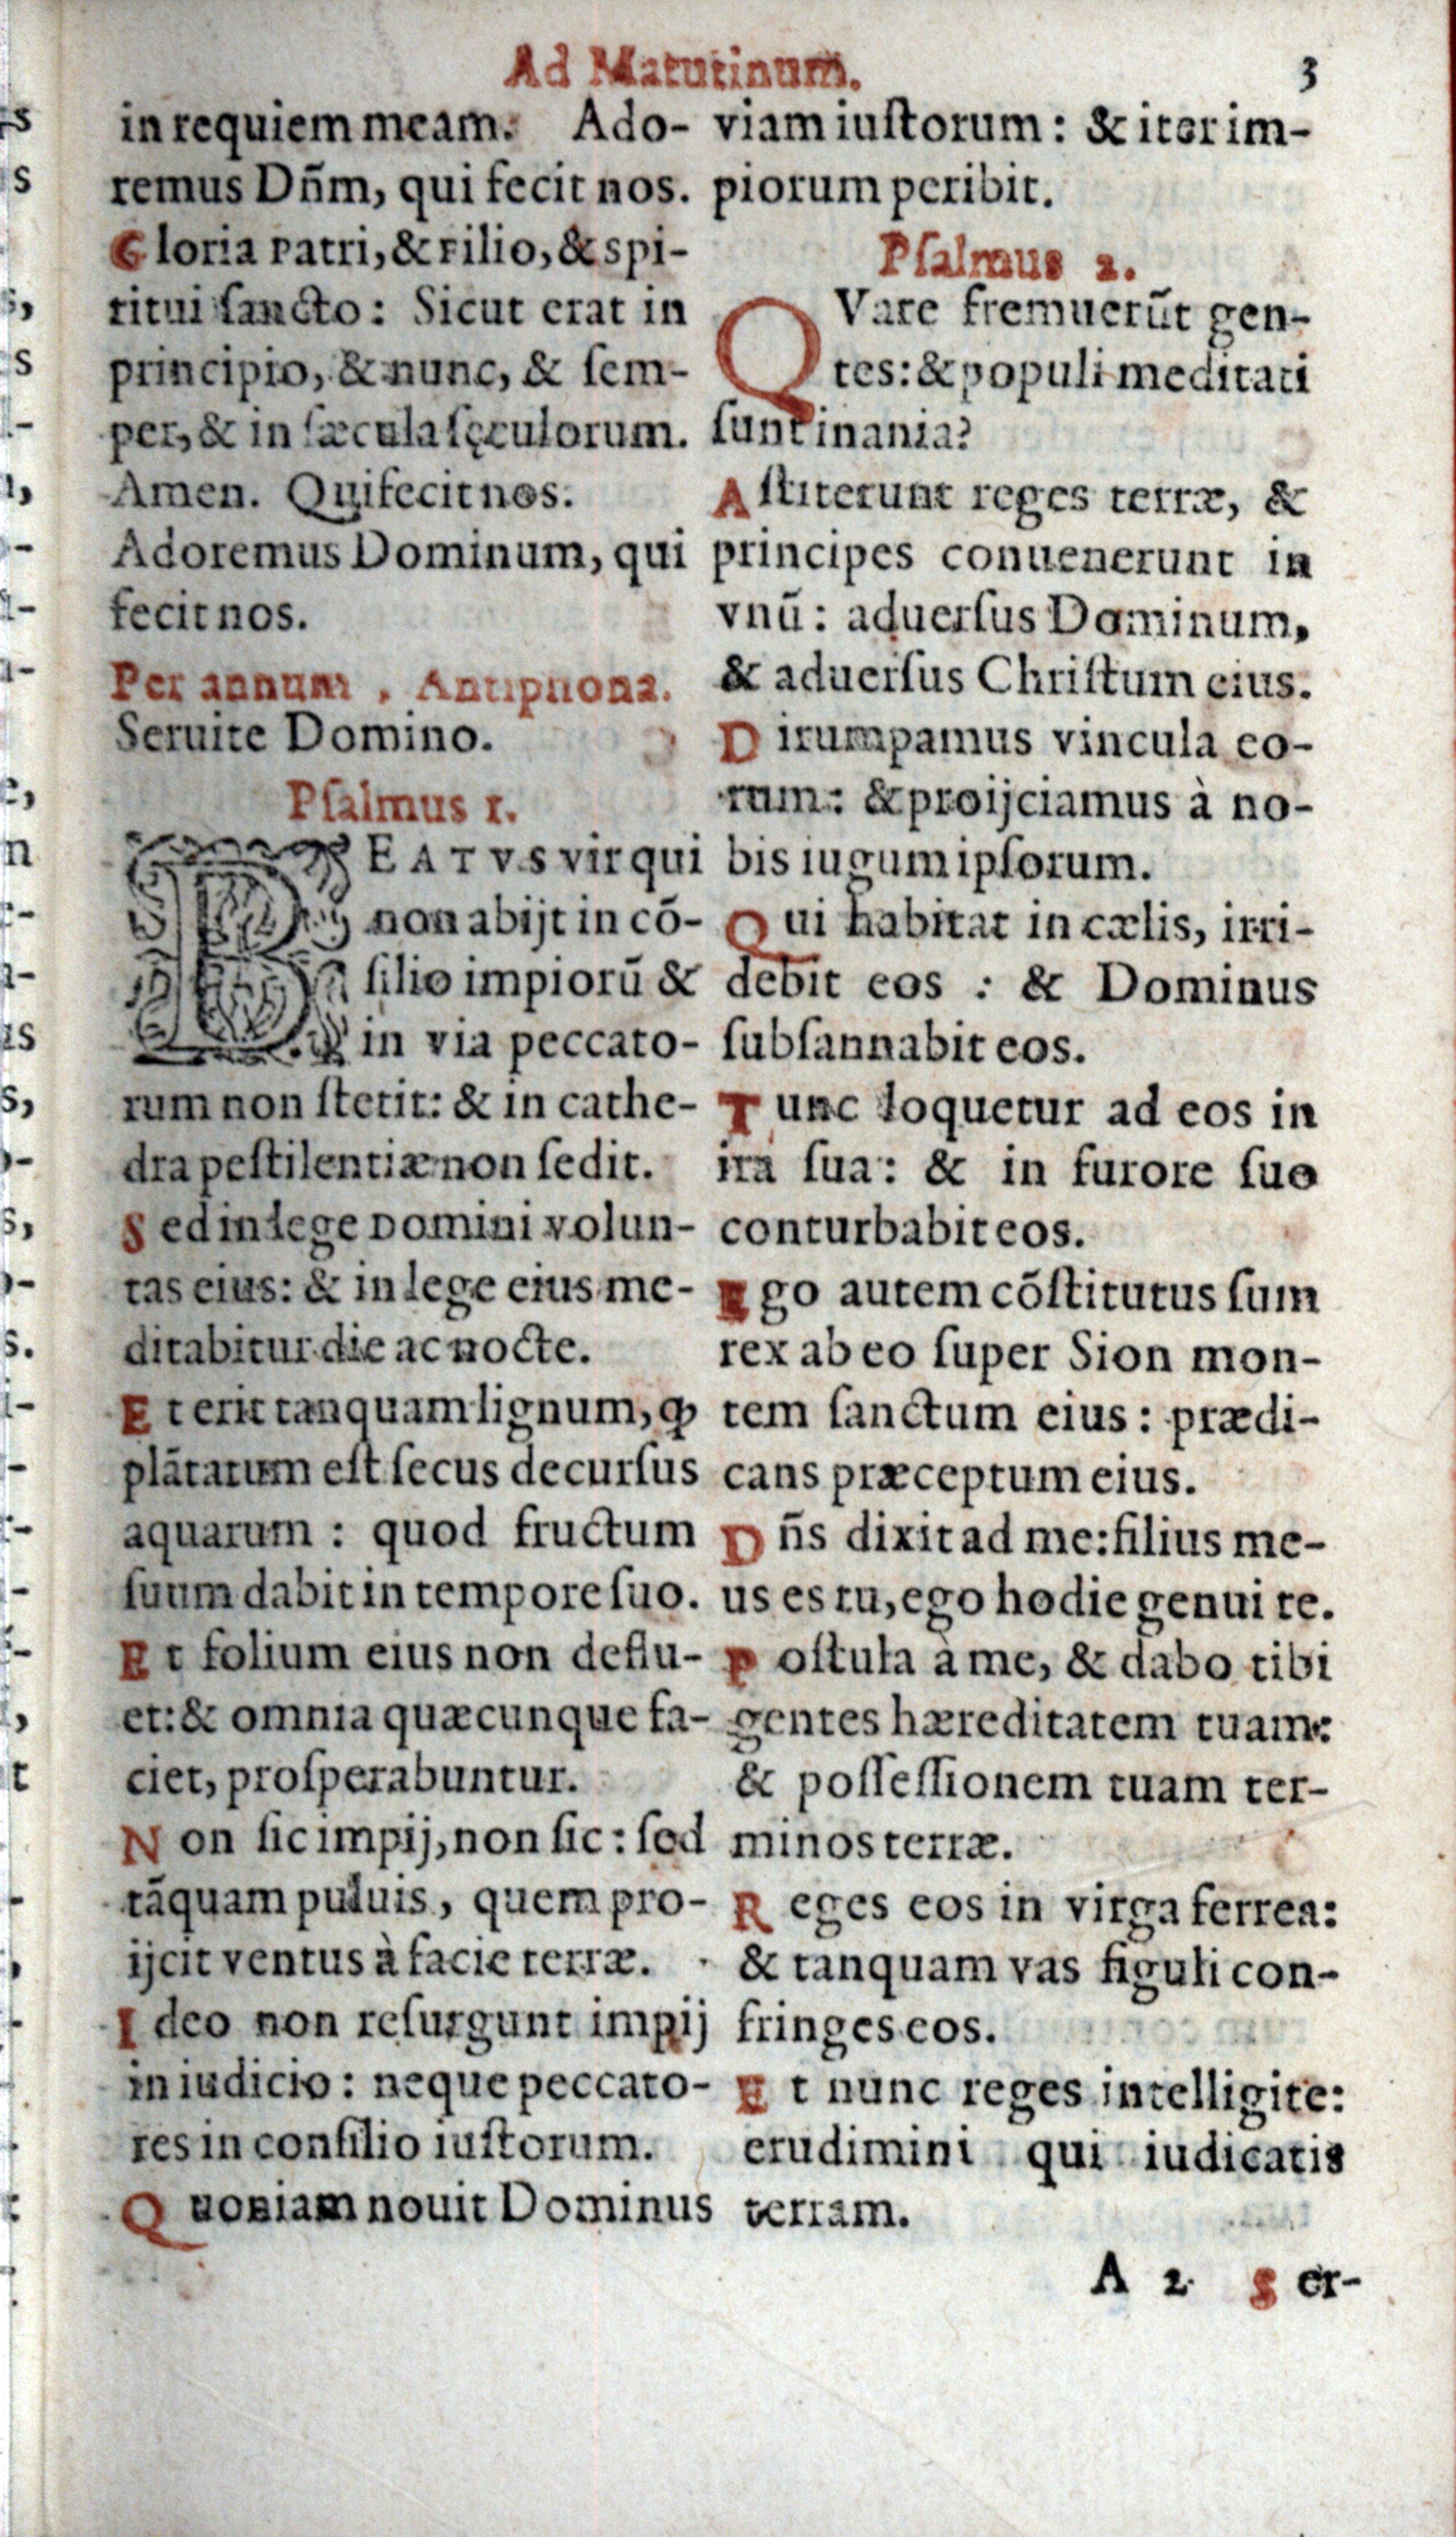 Ad Matutinum. 3
in requiem meam. Ado-
remus Dñm, qui fecit nos.
Gloria Patri, & Filio, & Spi-
ritui ſancto: Sicut erat in
principio, & nunc, & ſem-
per, & in ſæcula ſęculorum.
Amen. Qui fecit nos.
Adoremus Dominum, qui
fecit nos.
Per annum, Antiphona.
Seruite Domino.
Pſalmus 1.
BEATVS vir qui
non abijt in cō-
ſilio impiorū &
in via peccato-
rum non ſtetit: & in cathe-
dra peſtilentiæ non ſedit.
Sed in lege Domini volun-
tas eius: & in lege eius me-
ditabitur die ac nocte.
Et erit tanquam lignum, ꝙ
plātatum eſt ſecus decurſus
aquarum : quod fructum
ſuum dabit in tempore ſuo.
Et folium eius non deflu-
et: & omnia quæcunque fa-
ciet, proſperabuntur.
Non ſic impij, non ſic: ſed
tāquam puluis, quem pro-
ijcit ventus à facie terræ.
Ideo non reſurgunt impij
in iudicio: neque peccato-
res in conſilio iuſtorum.
Quoniam nouit Dominus
viam iuſtorum: & iter im-
piorum peribit.
Pſalmus 2.
QVare fremuerūt gen-
tes: & populi meditati
ſunt inania?
Aſtiterunt reges terræ, &
principes conuenerunt in
vnū: aduerſus Dominum,
& aduerſus Chriſtum eius.
Dirumpamus vincula eo-
rum: & proijciamus à no-
bis iugum ipſorum.
Qui habitat in cælis, irri-
debit eos : & Dominus
ſubſannabit eos.
Tunc loquetur ad eos in
ira ſua: & in furore ſuo
conturbabit eos.
Ego autem cōſtitutus ſum
rex ab eo ſuper Sion mon-
tem ſanctum eius: prædi-
cans præceptum eius.
Dñs dixit ad me: filius me-
us es tu, ego hodie genui te.
Poſtula à me, & dabo tibi
gentes hæreditatem tuam:
& poſſeſſionem tuam ter-
minos terræ.
Reges eos in virga ferrea:
& tanquam vas figuli con-
fringes eos.
Et nunc reges intelligite:
erudimini qui iudicatis
terram.
A 2 Ser-